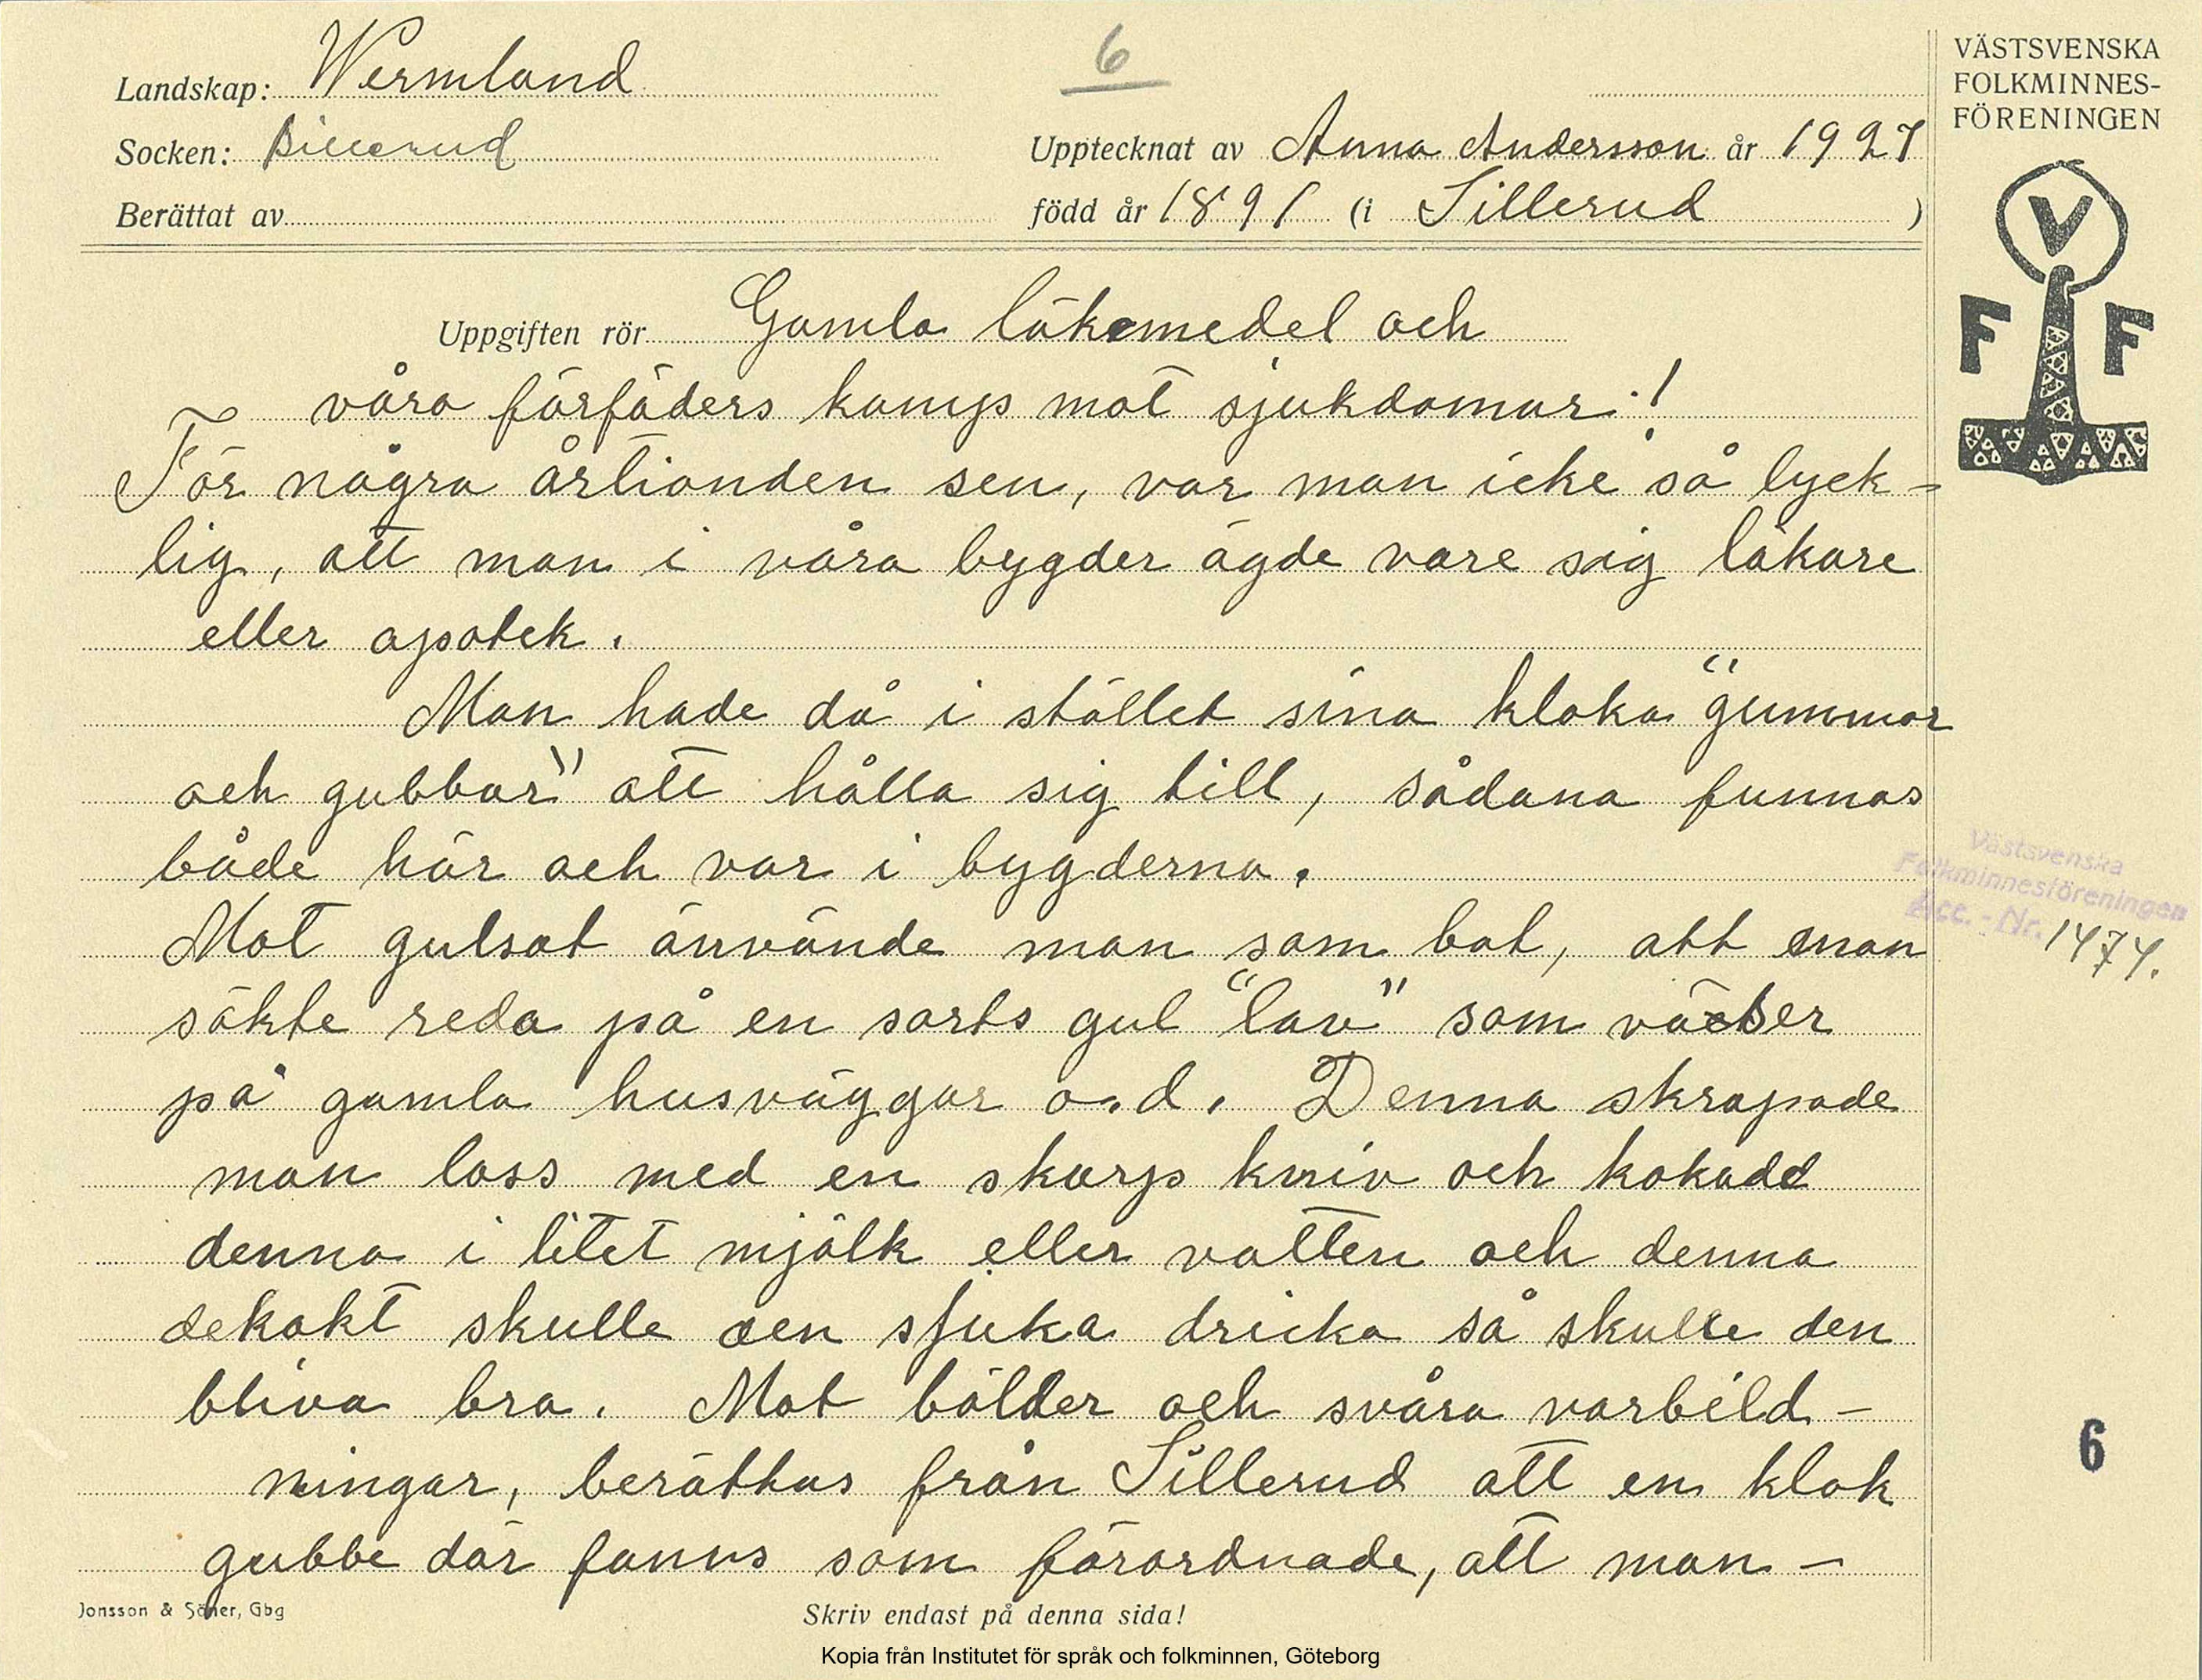 6
VÄSTSVENSKA
FOLKMINNES-
FÖRENINGEN
Landskap: Wermland
Socken: Sillerud
Upptecknat av Anna Andersson år 1927
Berättat av
född år 1891 (i Sillerud )
V
F F
Uppgiften rör Gamla läkemedel och
våra förfäders kamp mot sjukdomar!
För några årtionden sen, var man icke så lyck-
lig, att man i våra bygder ägde vare sig läkare
eller apotek.
Man hade då i stället sina kloka "gummor
och gubbar" att hålla sig till, sådana funnos
både här och var i bygderna.
Mot gulsot använde man som bot, att man
sökte reda på en sorts gul "lav" som växer
på gamla husväggar o.d. Denna skrapade
man loss med en skarp kniv och kokade
denna i litet mjölk eller vatten och denna
dekokt skulle den sjuka dricka så skulle den
bliva bra. Mot bölder och svåra varbild-
ningar, berättas från Sillerud att en klok
gubbe där fanns som förordnade, att man -
Västsvenska
Folkminnesföreningen
Acc.-Nr. 1474.
6
Jonsson & Söner, Gbg
Skriv endast på denna sida!
Kopia från Institutet för språk och folkminnen, Göteborg